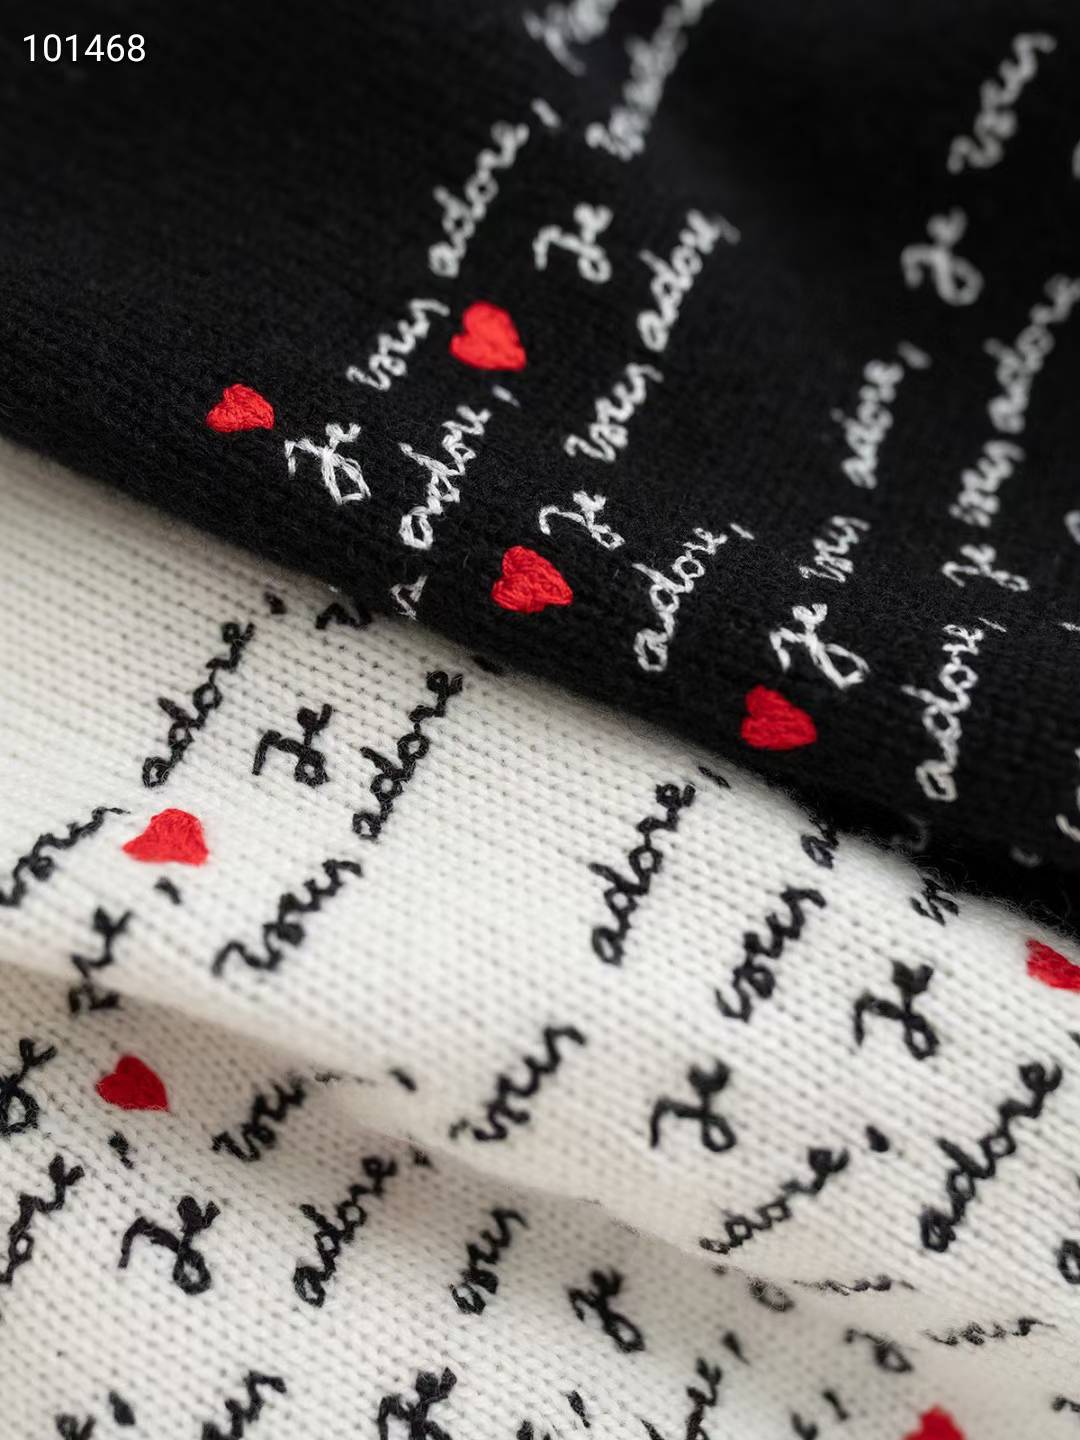 101468
Je vous adore,
Je vous adore,
adore,
Je vous adore,
adore,
Je vous
Je vous adore
adore,
adore,
Je
vous adore,
adore,
vous
Je
Je vous
adore,
vous
Je
adore,
adore
Je
vous
adore,
vous
Je
Je